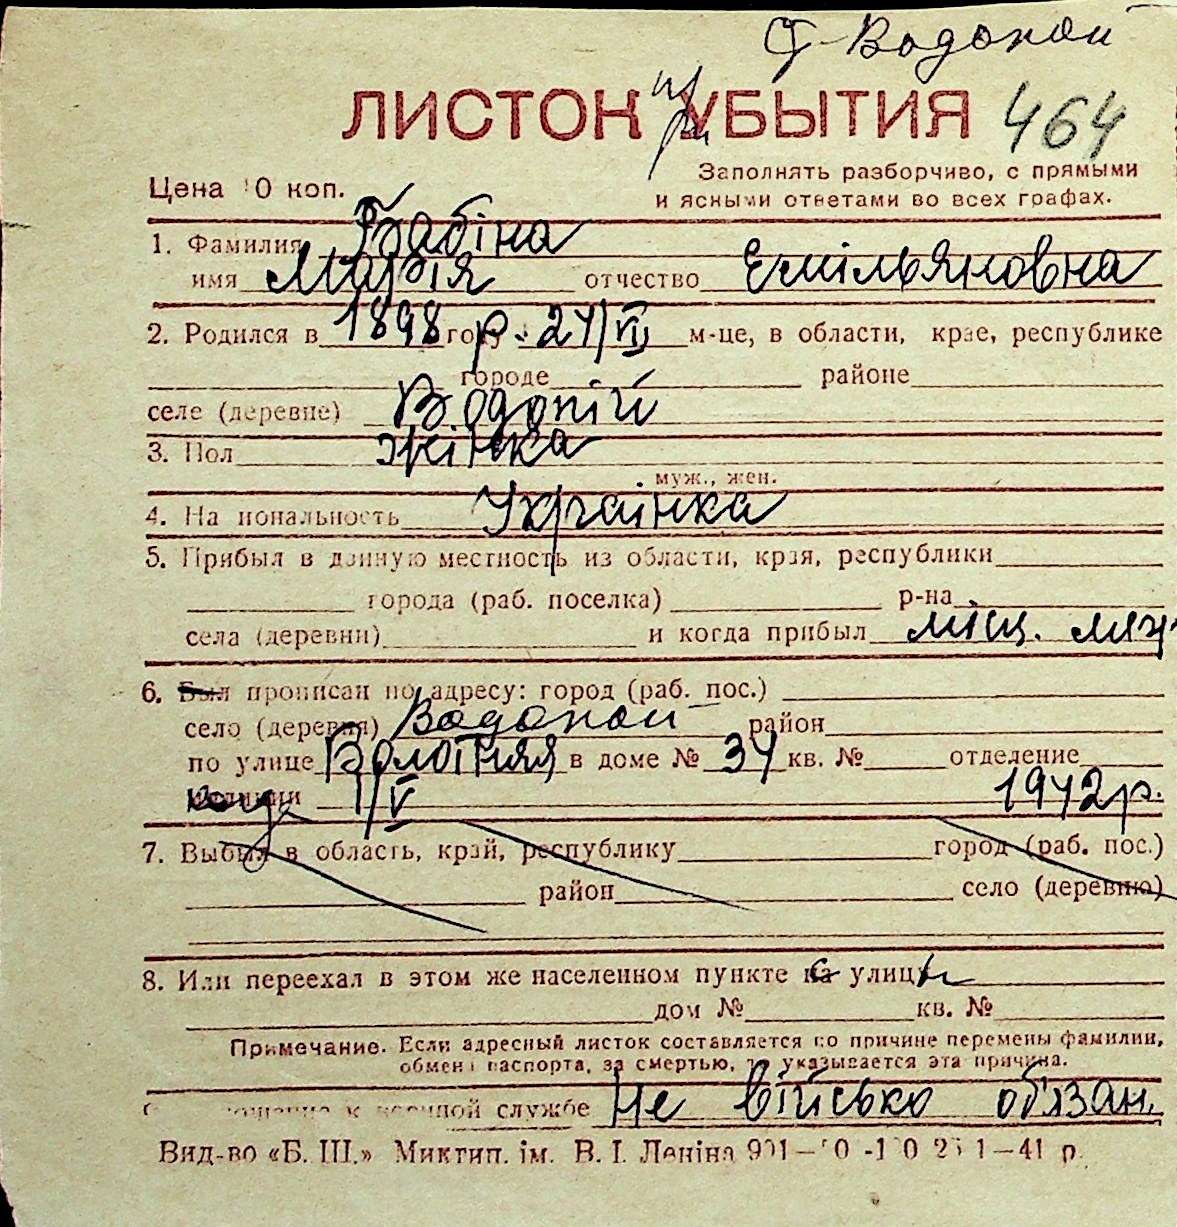 с. Водопой
ЛИСТОК при УБЫТИЯ 464
Заполнять разборчиво, с прямыми
Цена 10 коп. и ясными ответами во всех графах.
1. Фамилия Бабіна
имя Марія отчество Емільяновна
2. Родился в 1898 году р. 24/VII м-це, в области, крае, республике
городе районе
селе (деревне) Водопій
3. Пол жінка
муж., жен.
4. Национальность Українка
5. Прибыл в данную местность из области, края, республики
города (раб. поселка) р-на
села (деревни) и когда прибыл місц. меш
6. Был прописан по адресу: город (раб. пос.)
село (деревня) Водопой район
по улице Болотняя в доме № 34 кв. № отделение
милиции 1/V 1942 р.
7. Выбыл в область, край, республику город (раб. пос.)
район село (деревню)
8. Или переехал в этом же населенном пункте с улицы
дом № кв. №
Примечание. Если адресный листок составляется по причине перемены фамилии,
обмена паспорта, за смертью, то указывается эта причина.
к военной службе Не військо об'язан.
Вид-во «Б. Ш.» Миктип. ім. В. І. Леніна 1—41 р.